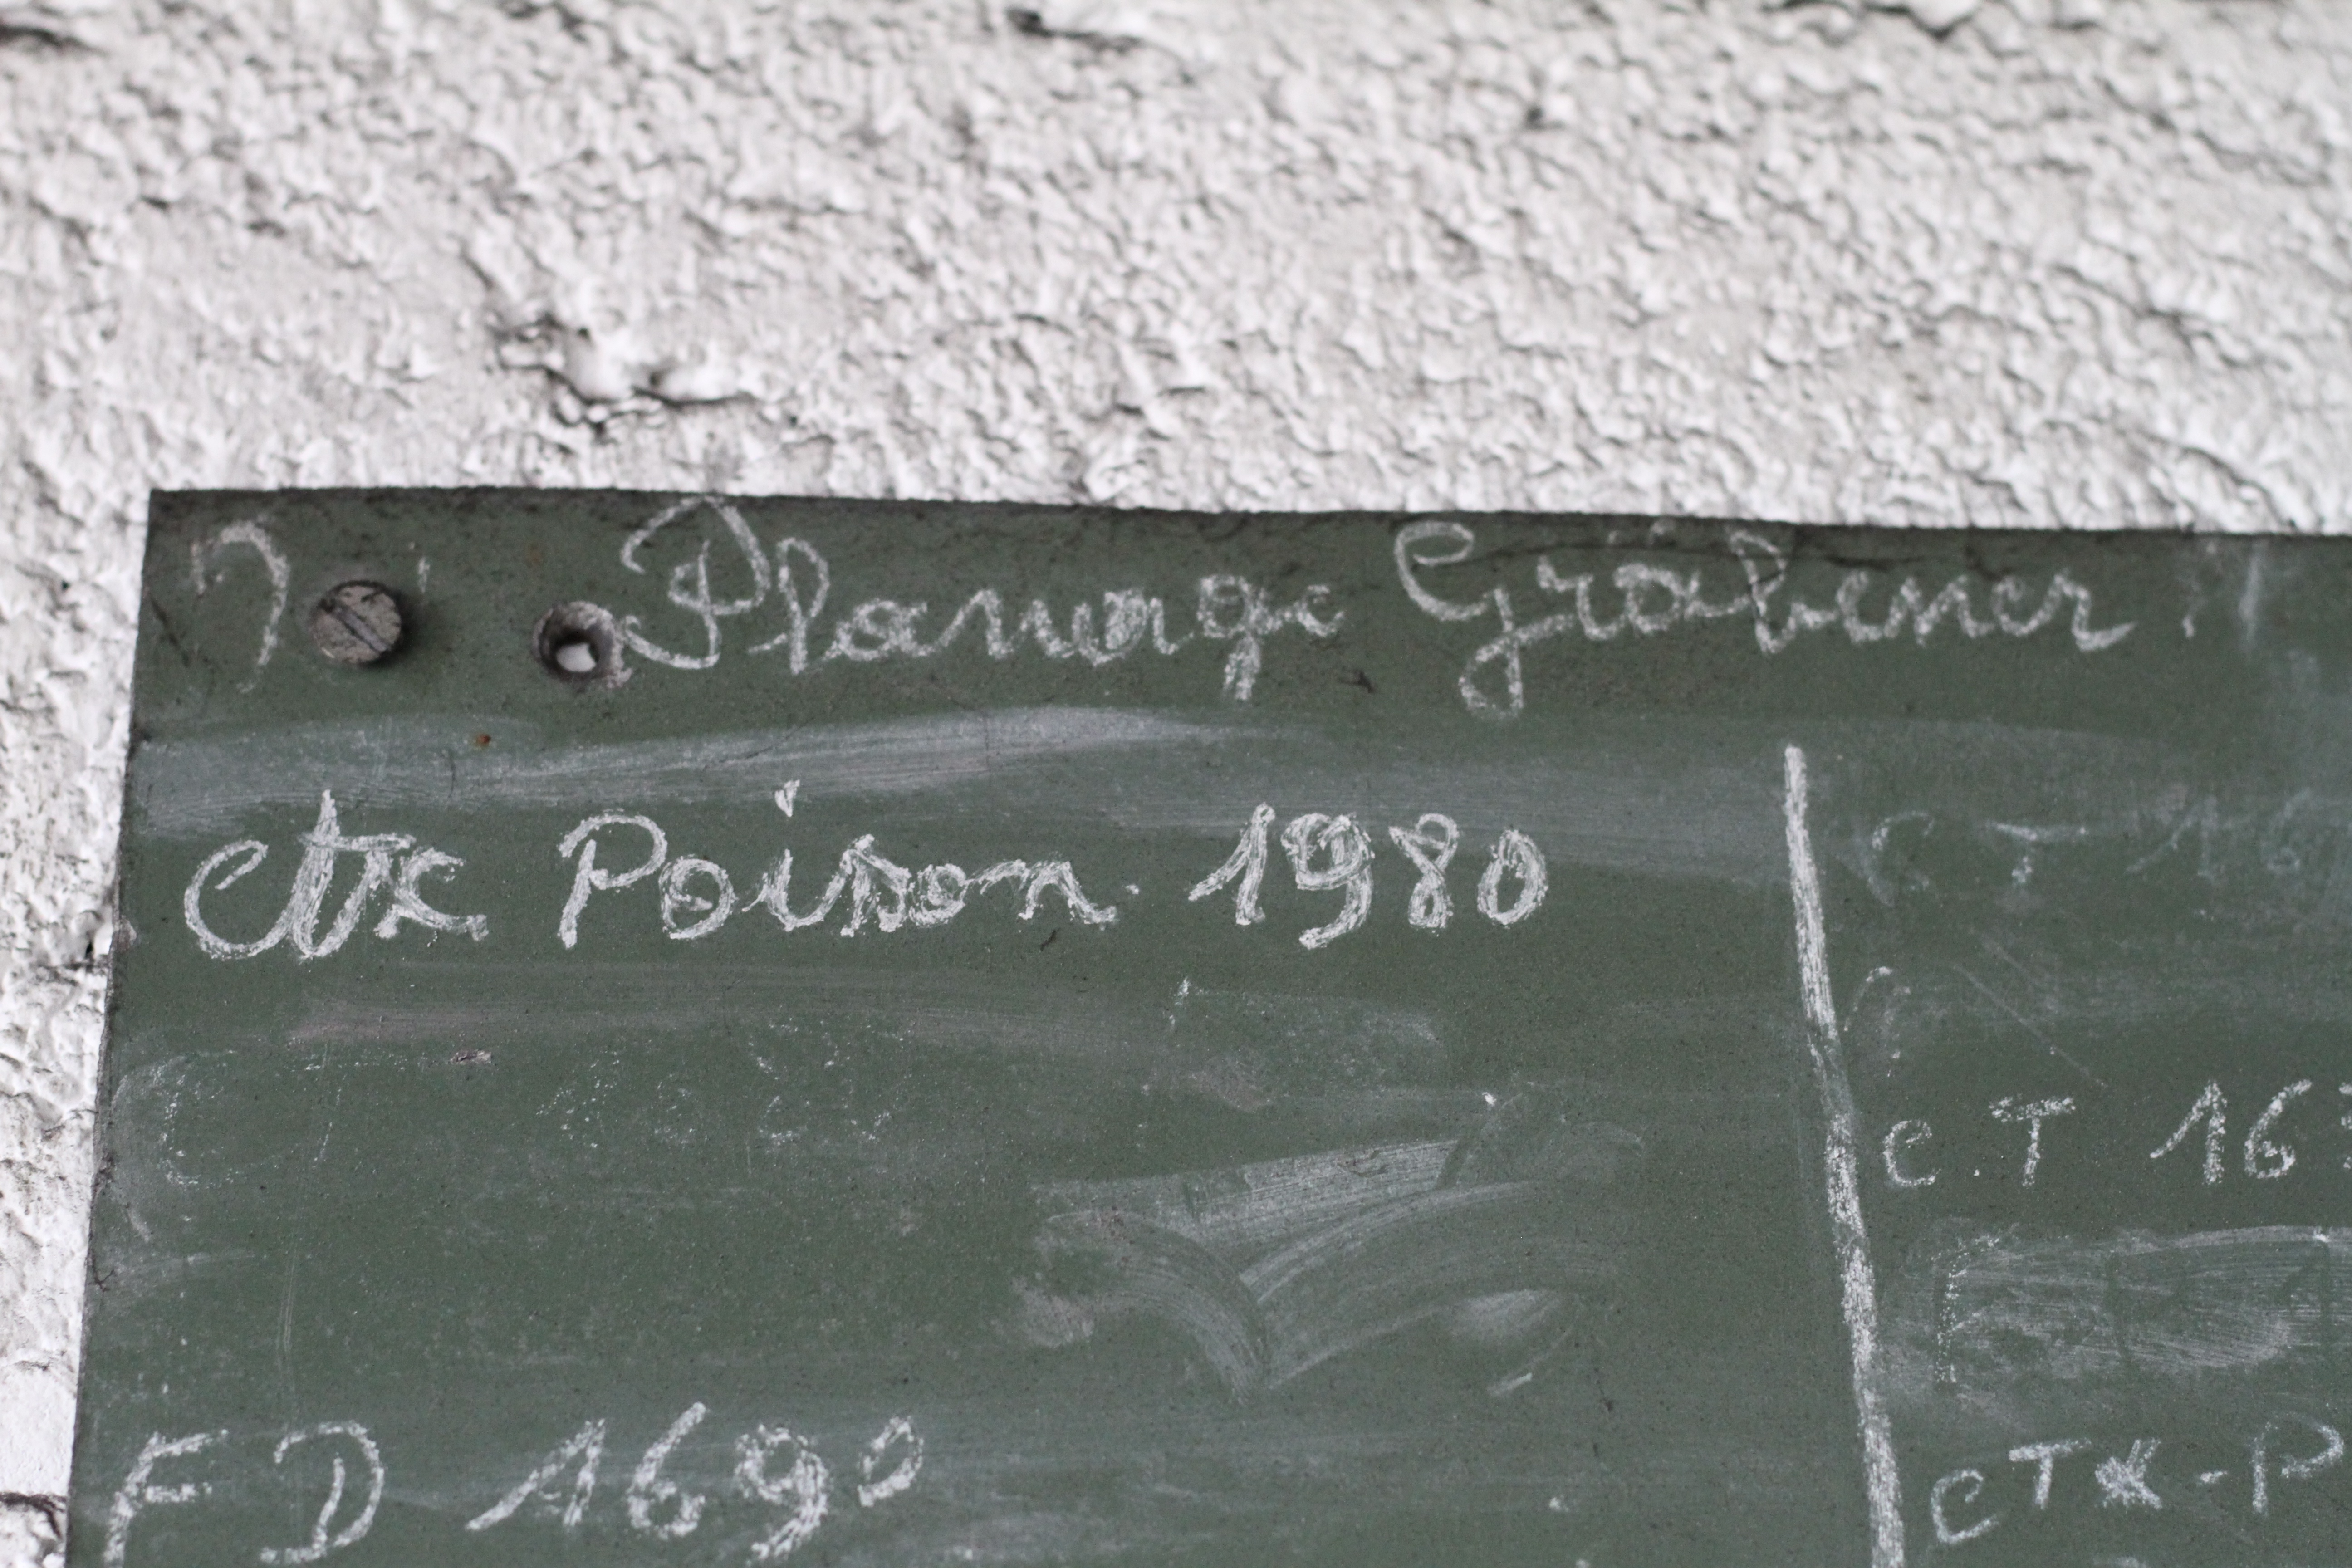 Planage Gräbener
ctx Poison 1980
C T 16
C.T 16
FD 1690
CTX-P